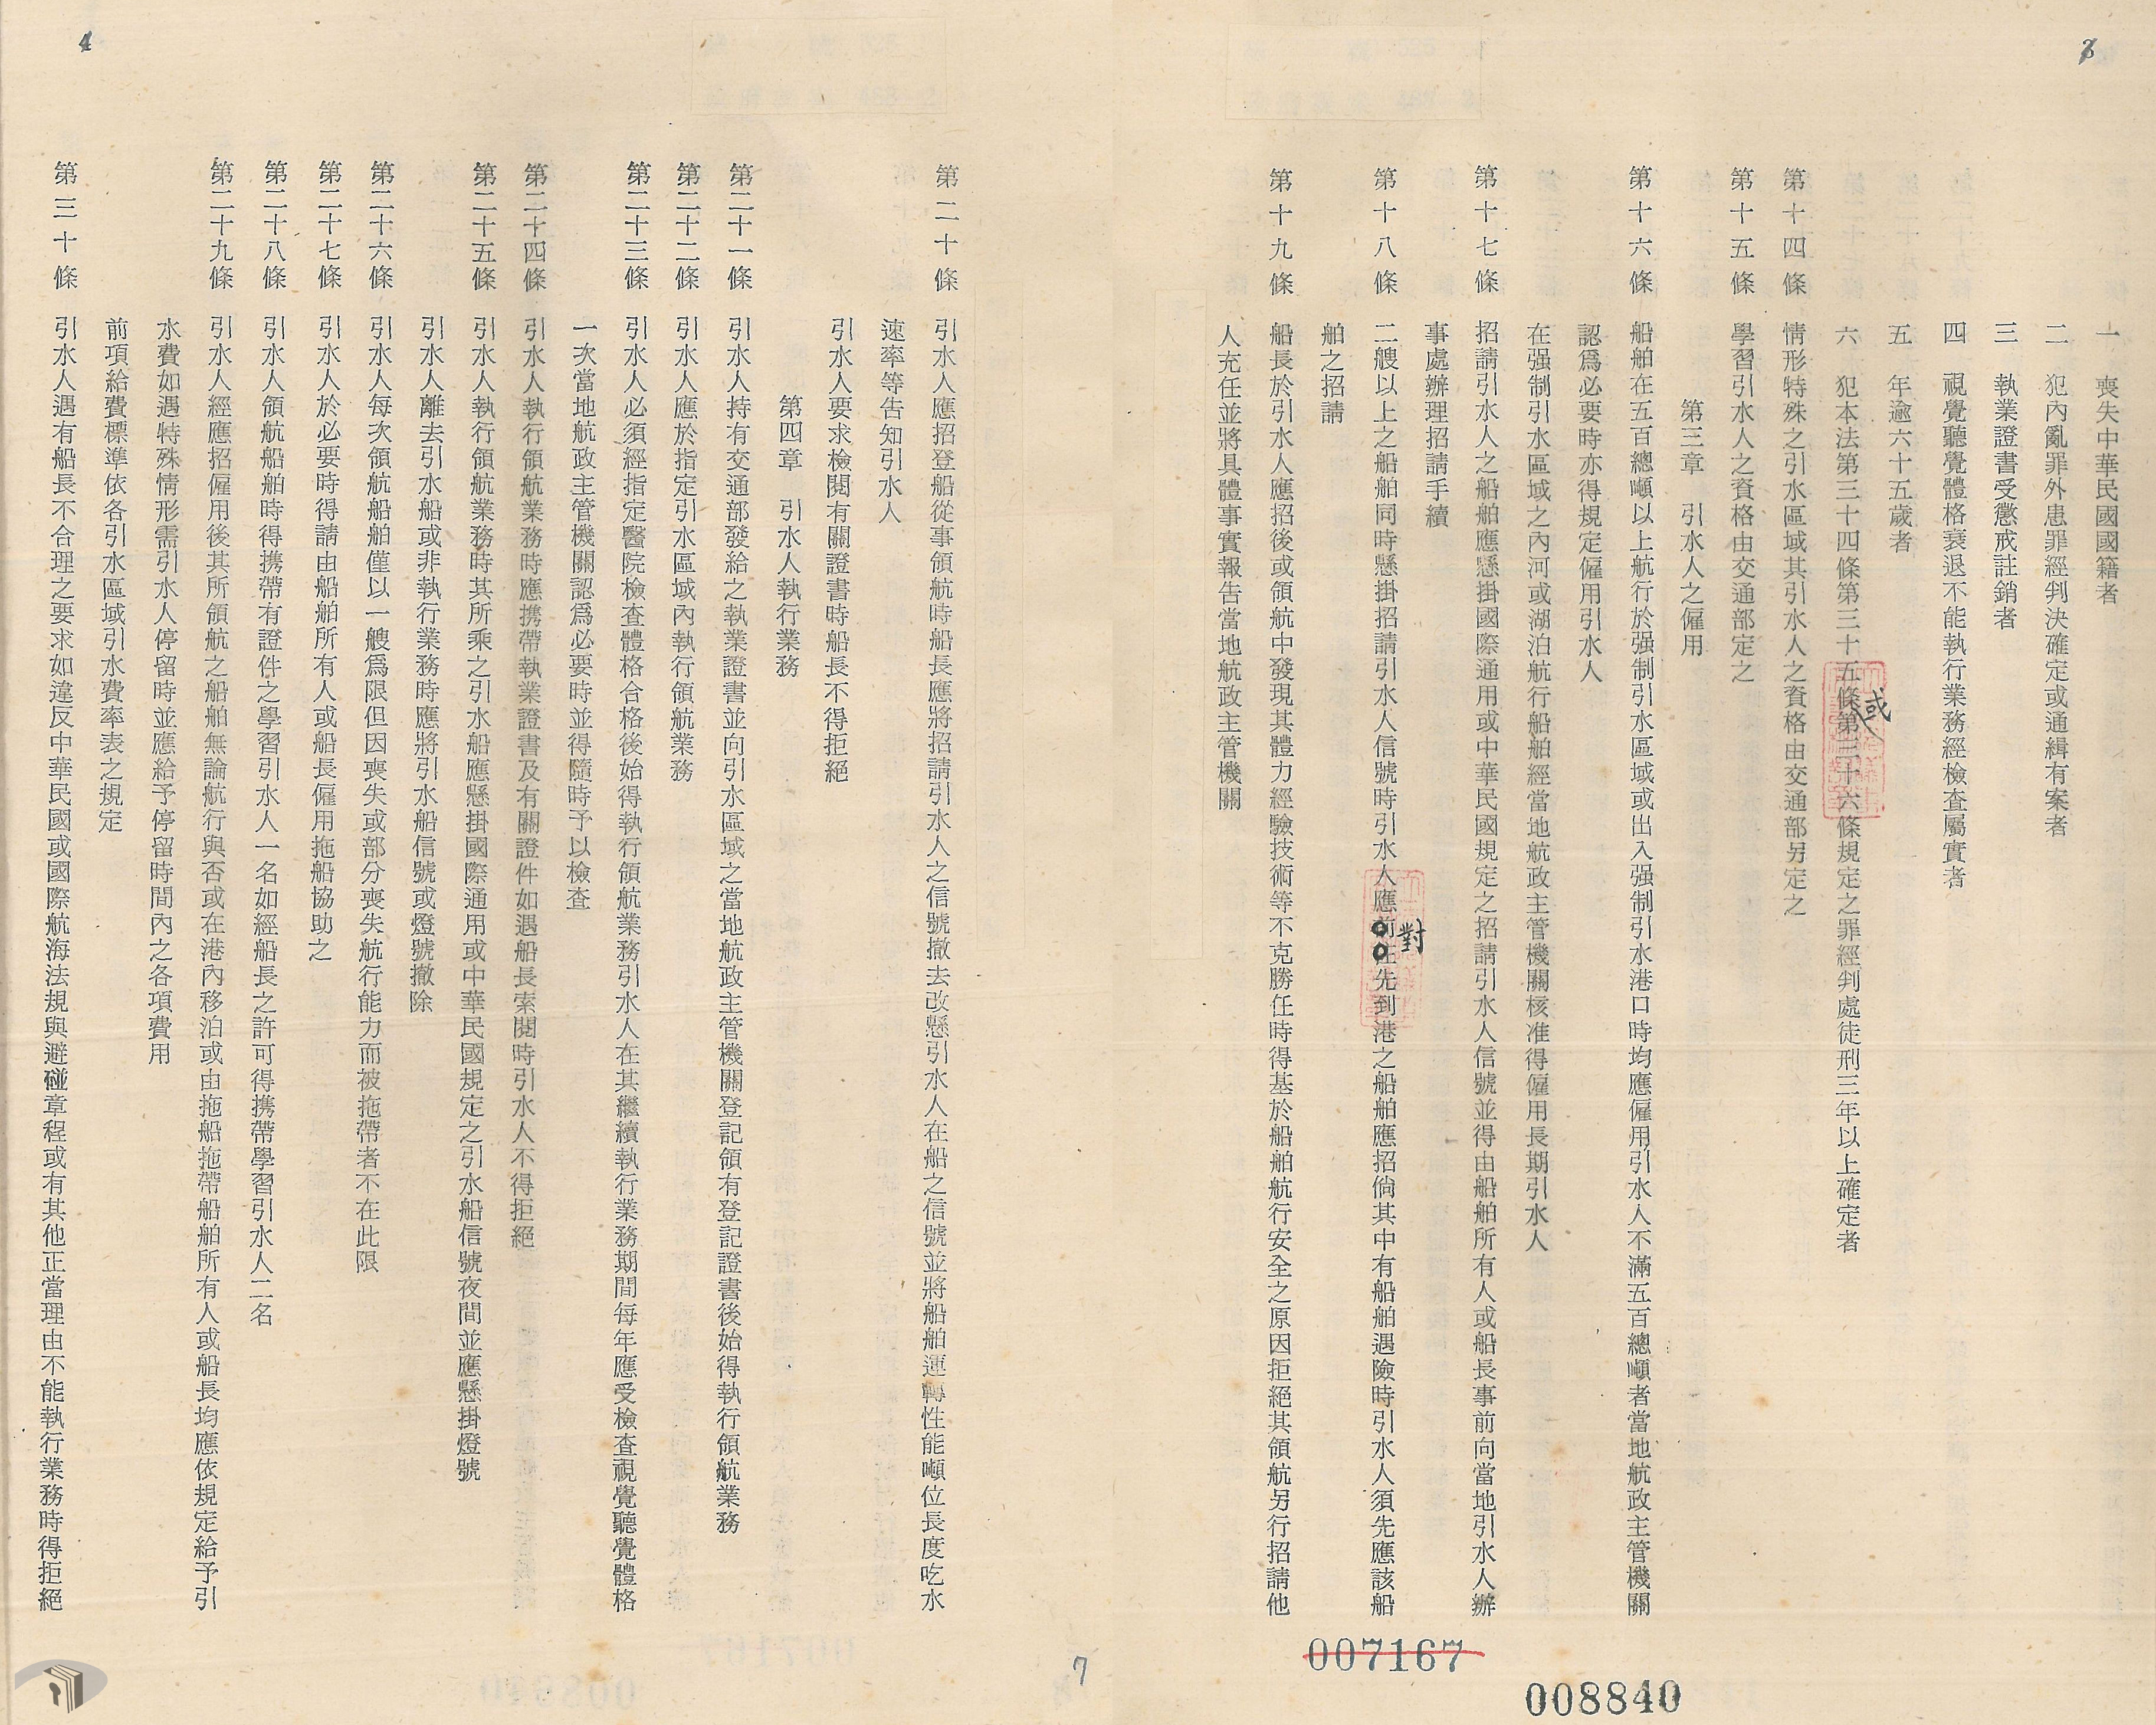 3
一　喪失中華民國國籍者
二　犯內亂罪外患罪經判決確定或通緝有案者
三　執業證書受懲戒註銷者
四　視覺聽覺體格衰退不能執行業務經檢查屬實者
五　年逾六十五歲者
六　犯本法第三十四條第三十五條或第三十六條規定之罪經判處徒刑三年以上確定者
第十四條　情形特殊之引水區域其引水人之資格由交通部另定之
第十五條　學習引水人之資格由交通部定之
第三章　引水人之僱用
第十六條　船舶在五百總噸以上航行於强制引水區域或出入强制引水港口時均應僱用引水人不滿五百總噸者當地航政主管機關
認爲必要時亦得規定僱用引水人
在强制引水區域之內河或湖泊航行船舶經當地航政主管機關核准得僱用長期引水人
第十七條　招請引水人之船舶應懸掛國際通用或中華民國規定之招請引水人信號並得由船舶所有人或船長事前向當地引水人辦
事處辦理招請手續
第十八條　二艘以上之船舶同時懸掛招請引水人信號時引水人應前往對先到港之船舶應招倘其中有船舶遇險時引水人須先應該船
舶之招請
第十九條　船長於引水人應招後或領航中發現其體力經驗技術等不克勝任時得基於船舶航行安全之原因拒絕其領航另行招請他
人充任並將具體事實報告當地航政主管機關
007167
008840
4
第二十條　引水人應招登船從事領航時船長應將招請引水人之信號撤去改懸引水人在船之信號並將船舶運轉性能噸位長度吃水
速率等告知引水人
引水人要求檢閱有關證書時船長不得拒絕
第四章　引水人執行業務
第二十一條　引水人持有交通部發給之執業證書並向引水區域之當地航政主管機關登記領有登記證書後始得執行領航業務
第二十二條　引水人應於指定引水區域內執行領航業務
第二十三條　引水人必須經指定醫院檢查體格合格後始得執行領航業務引水人在其繼續執行業務期間每年應受檢查視覺聽覺體格
一次當地航政主管機關認爲必要時並得隨時予以檢查
第二十四條　引水人執行領航業務時應携帶執業證書及有關證件如遇船長索閱時引水人不得拒絕
第二十五條　引水人執行領航業務時其所乘之引水船應懸掛國際通用或中華民國規定之引水船信號夜間並應懸掛燈號
引水人離去引水船或非執行業務時應將引水船信號或燈號撤除
第二十六條　引水人每次領航船舶僅以一艘爲限但因喪失或部分喪失航行能力而被拖帶者不在此限
第二十七條　引水人於必要時得請由船舶所有人或船長僱用拖船協助之
第二十八條　引水人領航船舶時得携帶有證件之學習引水人一名如經船長之許可得携帶學習引水人二名
第二十九條　引水人經應招僱用後其所領航之船舶無論航行與否或在港內移泊或由拖船拖帶船舶所有人或船長均應依規定給予引
水費如遇特殊情形需引水人停留時並應給予停留時間內之各項費用
前項給費標準依各引水區域引水費率表之規定
第三十條　引水人遇有船長不合理之要求如違反中華民國或國際航海法規與避碰章程或有其他正當理由不能執行業務時得拒絕
7